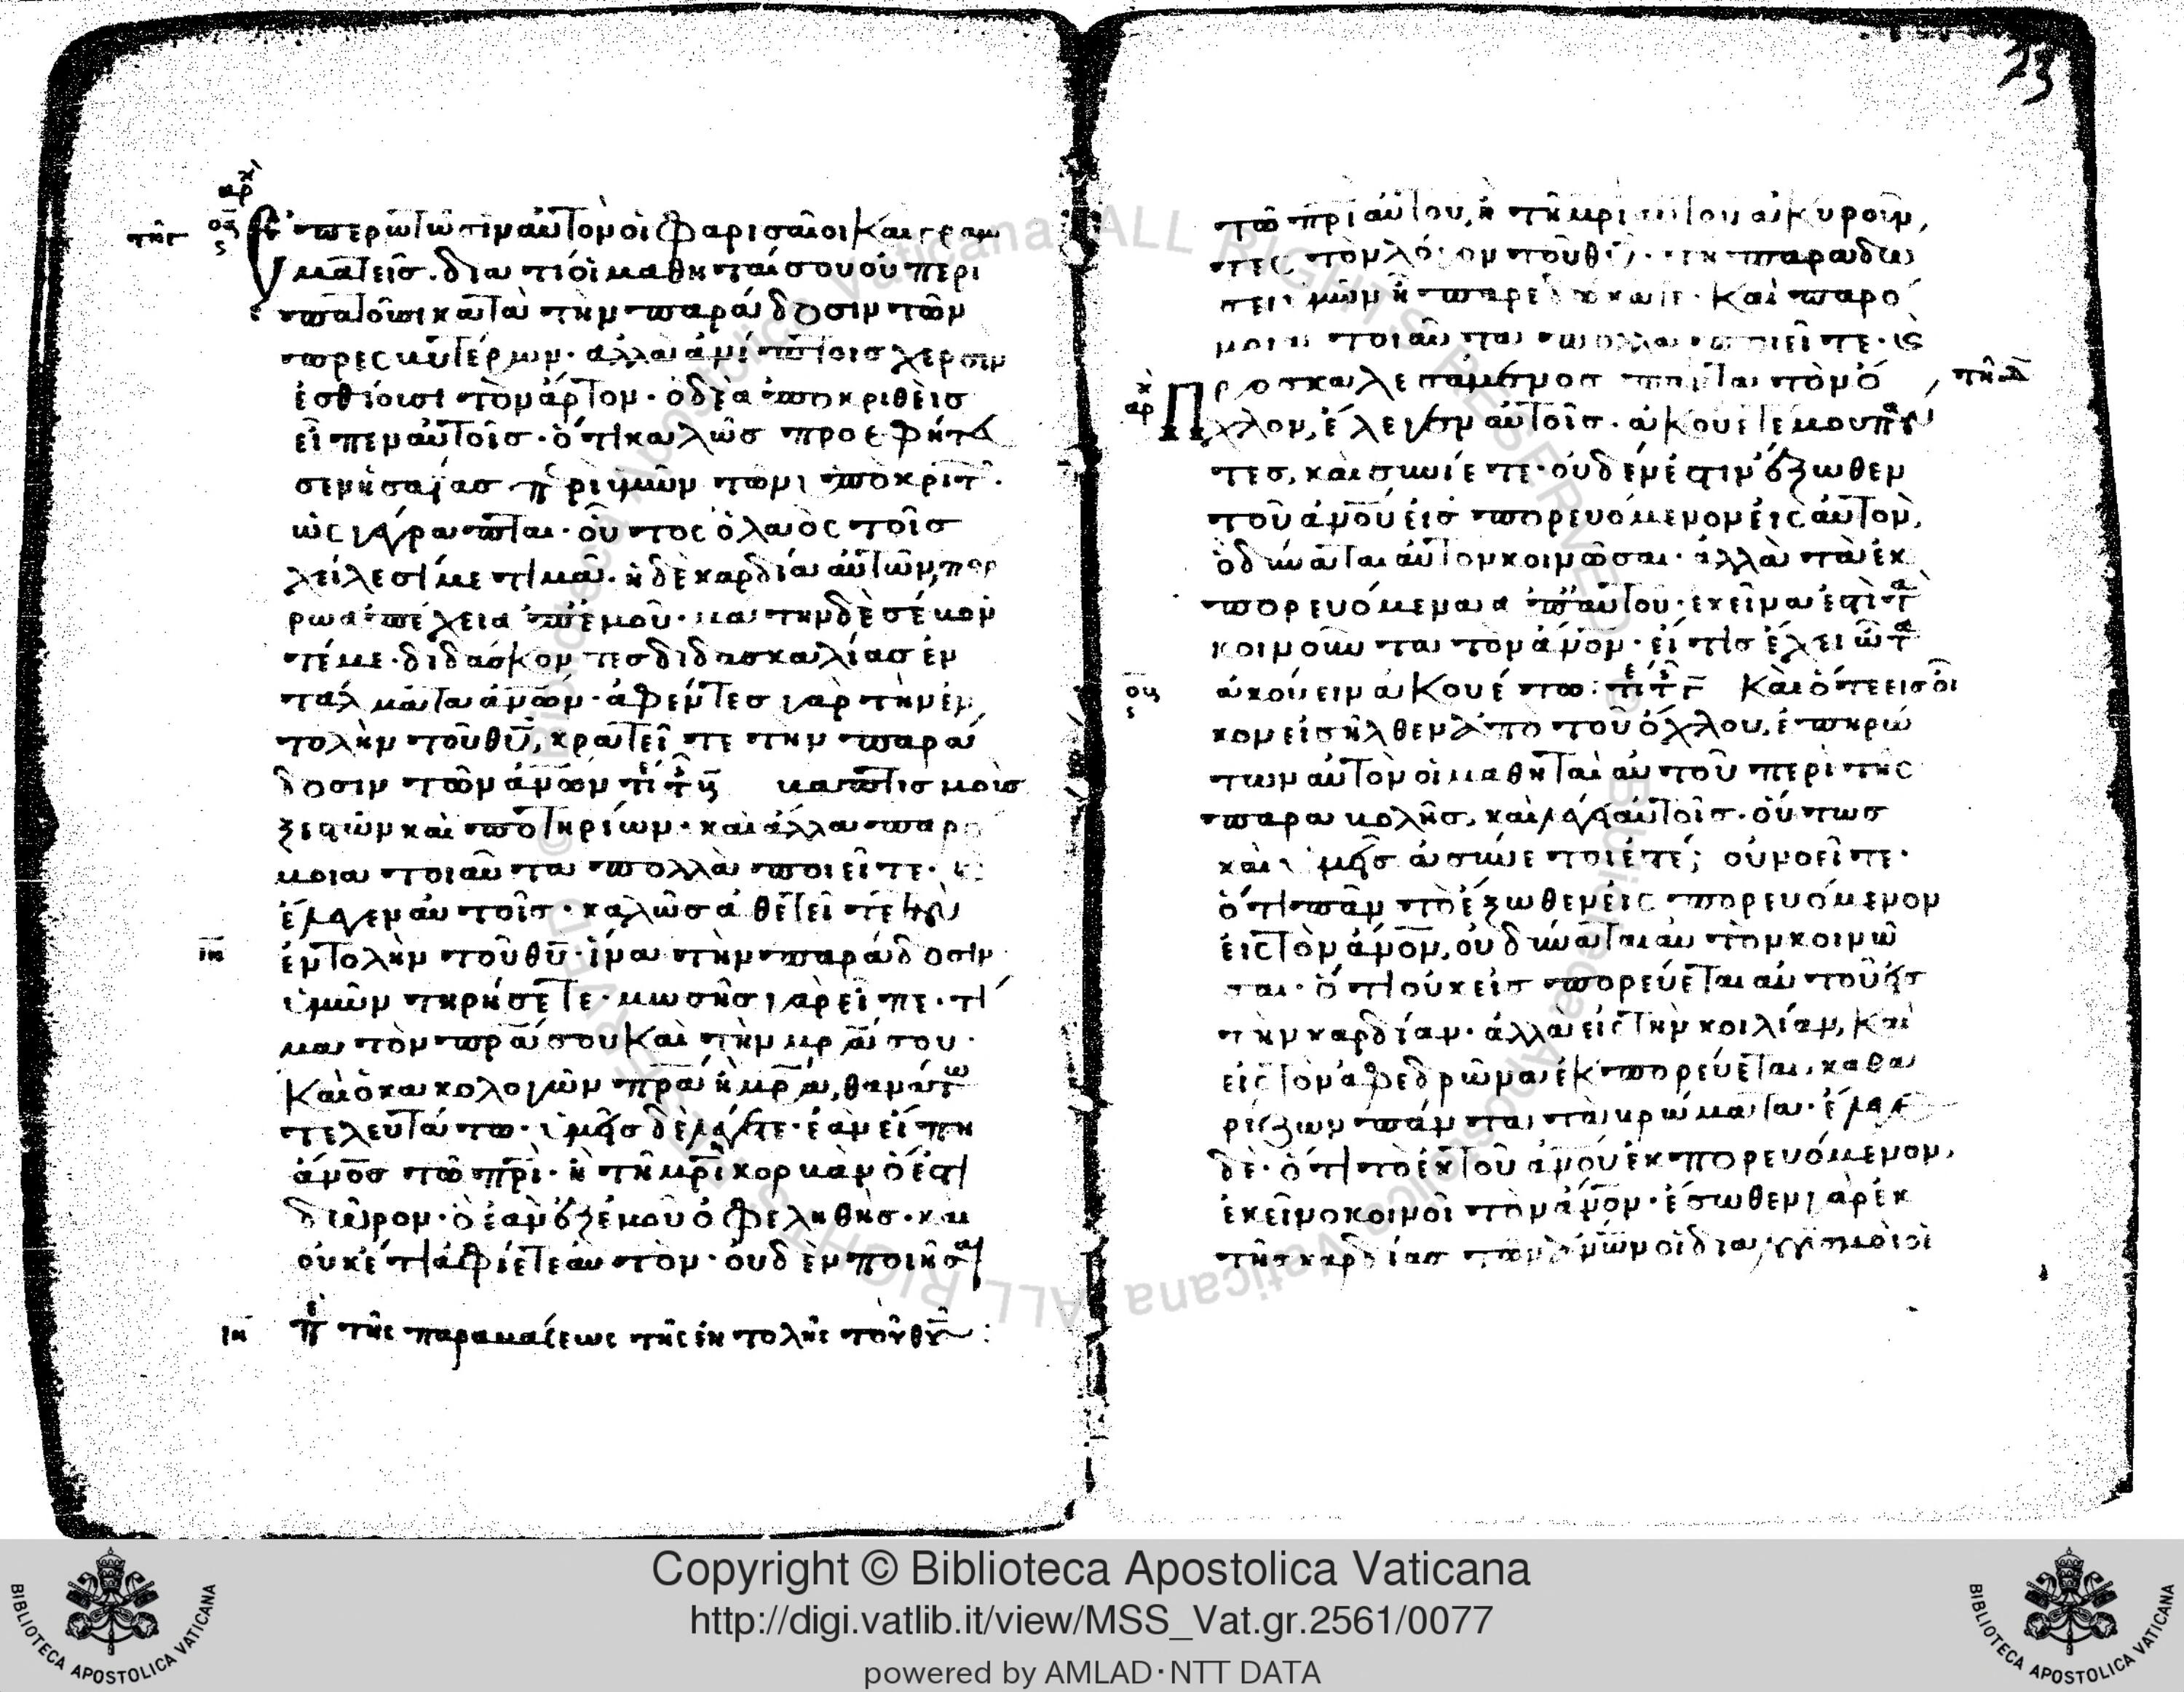 ἐπερωτῶσιν αὐτὸν οἱ φαρισαῖοι καὶ γραμ
ματεῖς. διατί οἱ μαθηταί σου οὐ περι
πατοῦσι κατὰ τὴν παράδοσιν τῶν
πρεσβυτέρων· ἀλλὰ ἀνίπτοις χερσὶν
ἐσθίουσι τὸν ἄρτον· ὁ δὲ ἀποκριθεὶς
εἶπεν αὐτοῖς· ὅτι καλῶς προεφήτευ
σεν ἡσαΐας περὶ ὑμῶν τῶν ὑποκριτ
ὡς γέγραπται· οὗτος ὁ λαὸς τοῖς
χείλεσί με τιμᾶ· ἡ δὲ καρδία αὐτῶν, πορ
ρω ἀπέχει ἀπ' ἐμοῦ· μάτην δὲ σέβον
ταί με· διδάσκοντες διδασκαλίας ἐν
τάλματα ἀν̅ων· ἀφέντες γὰρ τὴν ἐν
τολὴν τοῦ θυ̅, κρατεῖτε τὴν παρά
δοσιν τῶν ἀν̅ων βαπτισμοὺς
ξεστῶν καὶ ποτηρίων· καὶ ἄλλα παρό
μοια τοιαῦτα πολλὰ ποιεῖτε·
ἔλεγεν αὐτοῖς· καλῶς ἀθετεῖτε τὴν
ἐντολὴν τοῦ θυ̅· ἵνα τὴν παράδοσιν
ὑμῶν τηρήσετε· μωσῆς γὰρ εἶπε· τί
μα τὸν πρ̅α σου καὶ τὴν μρ̅α σου·
καὶ ὁ κακολογῶν πρ̅α ἢ μρ̅α, θανάτω
τελευτάτω· ὑμεῖς δὲ λέγετε· ἐὰν εἴπη
ἄν̅ος τῶ πρ̅ι· ἢ τῆ μρ̅ι κορβὰν ὅ ἐστι
δῶρον· ὃ ἐὰν ἐξ ἐμοῦ ὀφεληθῆς· καὶ
οὐκέτι ἀφίετε αὐτὸν· οὐδὲν ποιῆσαι
π τῆς παραβάσεως τῆς ἐντολῆς τοῦ θυ̅
23
τῶ πρ̅ι αὐτοῦ, ἢ τῆ μρ̅ι αὐτοῦ ἀκυροῦν
τες τὸν λόγον τοῦ θυ̅· τῆ παραδό
σει ὑμῶν ἧ παρεδώκατε· καὶ παρό
μοια τοιαῦτα πολλὰ ποιεῖτε· κ
προσκαλεσάμενος πάντα τὸν ὄ
χλον, ἔλεγεν αὐτοῖς· ἀκούετέ μου πάν
τες, καὶ συνίετε· οὐδέν ἐστιν ἔξωθεν
τοῦ ἀν̅ου εἰσπορευόμενον εἰς αὐτὸν,
ὃ δύναται αὐτὸν κοινῶσαι· ἀλλὰ τὰ ἐκ
πορευόμενα ἀπ' αὐτοῦ· ἐκεῖνά ἐστι τὰ
κοινοῦντα τὸν ἄν̅ον· εἴ τις ἔχει ὦτα
ἀκούειν ἀκουέτω: καὶ ὅτε εἰς οἶ
κον εἰσῆλθεν ἀπὸ τοῦ ὄχλου, ἐπηρώ
των αὐτὸν οἱ μαθηταὶ αὐτοῦ περὶ τῆς
παραβολῆς, καὶ λέγει αὐτοῖς· οὕτως
καὶ ὑμεῖς ἀσύνετοί ἐστέ; οὐ νοεῖτε·
ὅτι πᾶν τὸ ἔξωθεν εἰσπορευόμενον
εἰς τὸν ἄν̅ον, οὐ δύναται αὐτὸν κοινῶ
σαι· ὅτι οὐκ εἰσπορεύεται αὐτοῦ εἰς
τὴν καρδίαν· ἀλλὰ εἰς τὴν κοιλίαν, καὶ
εἰς τὸν ἀφεδρῶνα ἐκπορεύεται, καθα
ρίζων πάντα τὰ βρώματα· ἔλεγε
δὲ· ὅτι τὸ ἐκ τοῦ ἀν̅ου ἐκπορευόμενον,
ἐκεῖνο κοινοῖ τὸν ἄν̅ον· ἔσωθεν γὰρ ἐκ
τῆς καρδίας τῶν ἀν̅ων οἱ διαλογισμοὶ οἱ
Copyright © Biblioteca Apostolica Vaticana
http://digi.vatlib.it/view/MSS_Vat.gr.2561/0077
powered by AMLAD·NTT DATA